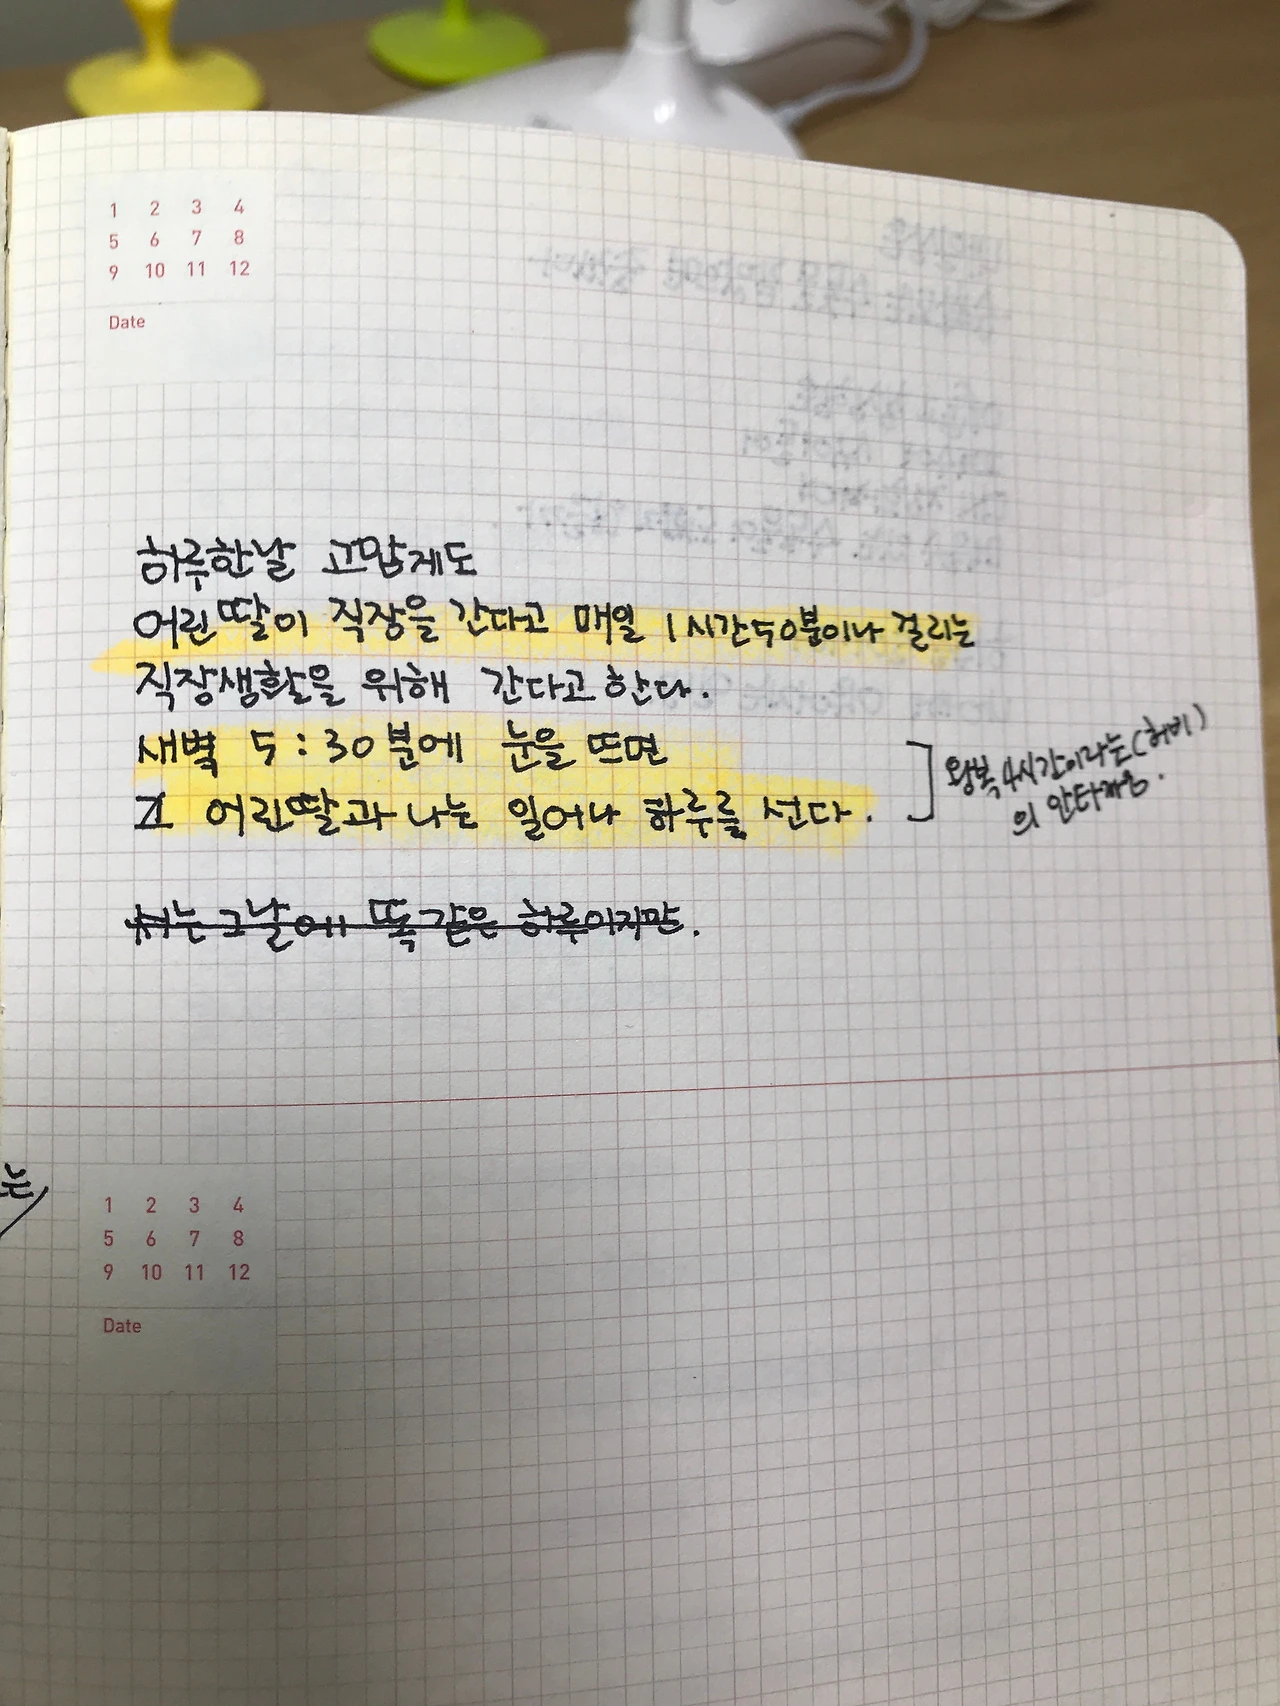 1 2 3 4
5 6 7 8
9 10 11 12
Date
하루한날 고맙게도
어린딸이 직장을 간다고 매일 1시간50분이나 걸리는
직장생활을 위해 간다고한다.
새벽 5:30분에 눈을 뜨면
그 어린딸과 나는 일어나 하루를 선다.
왕복 4시간이라는(허비)
의 안타까움.
그날에 똑같은 하루이지만.
는
1 2 3 4
5 6 7 8
9 10 11 12
Date